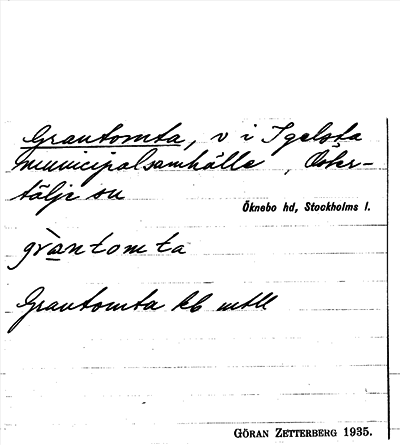 Grantomta, v i Igelsta
municipalsamhälle, Öster-
tälje sn
Öknebo hd, Stockholms l.
gràntomta
Grantomta kb mtll
GÖRAN ZETTERBERG 1935.